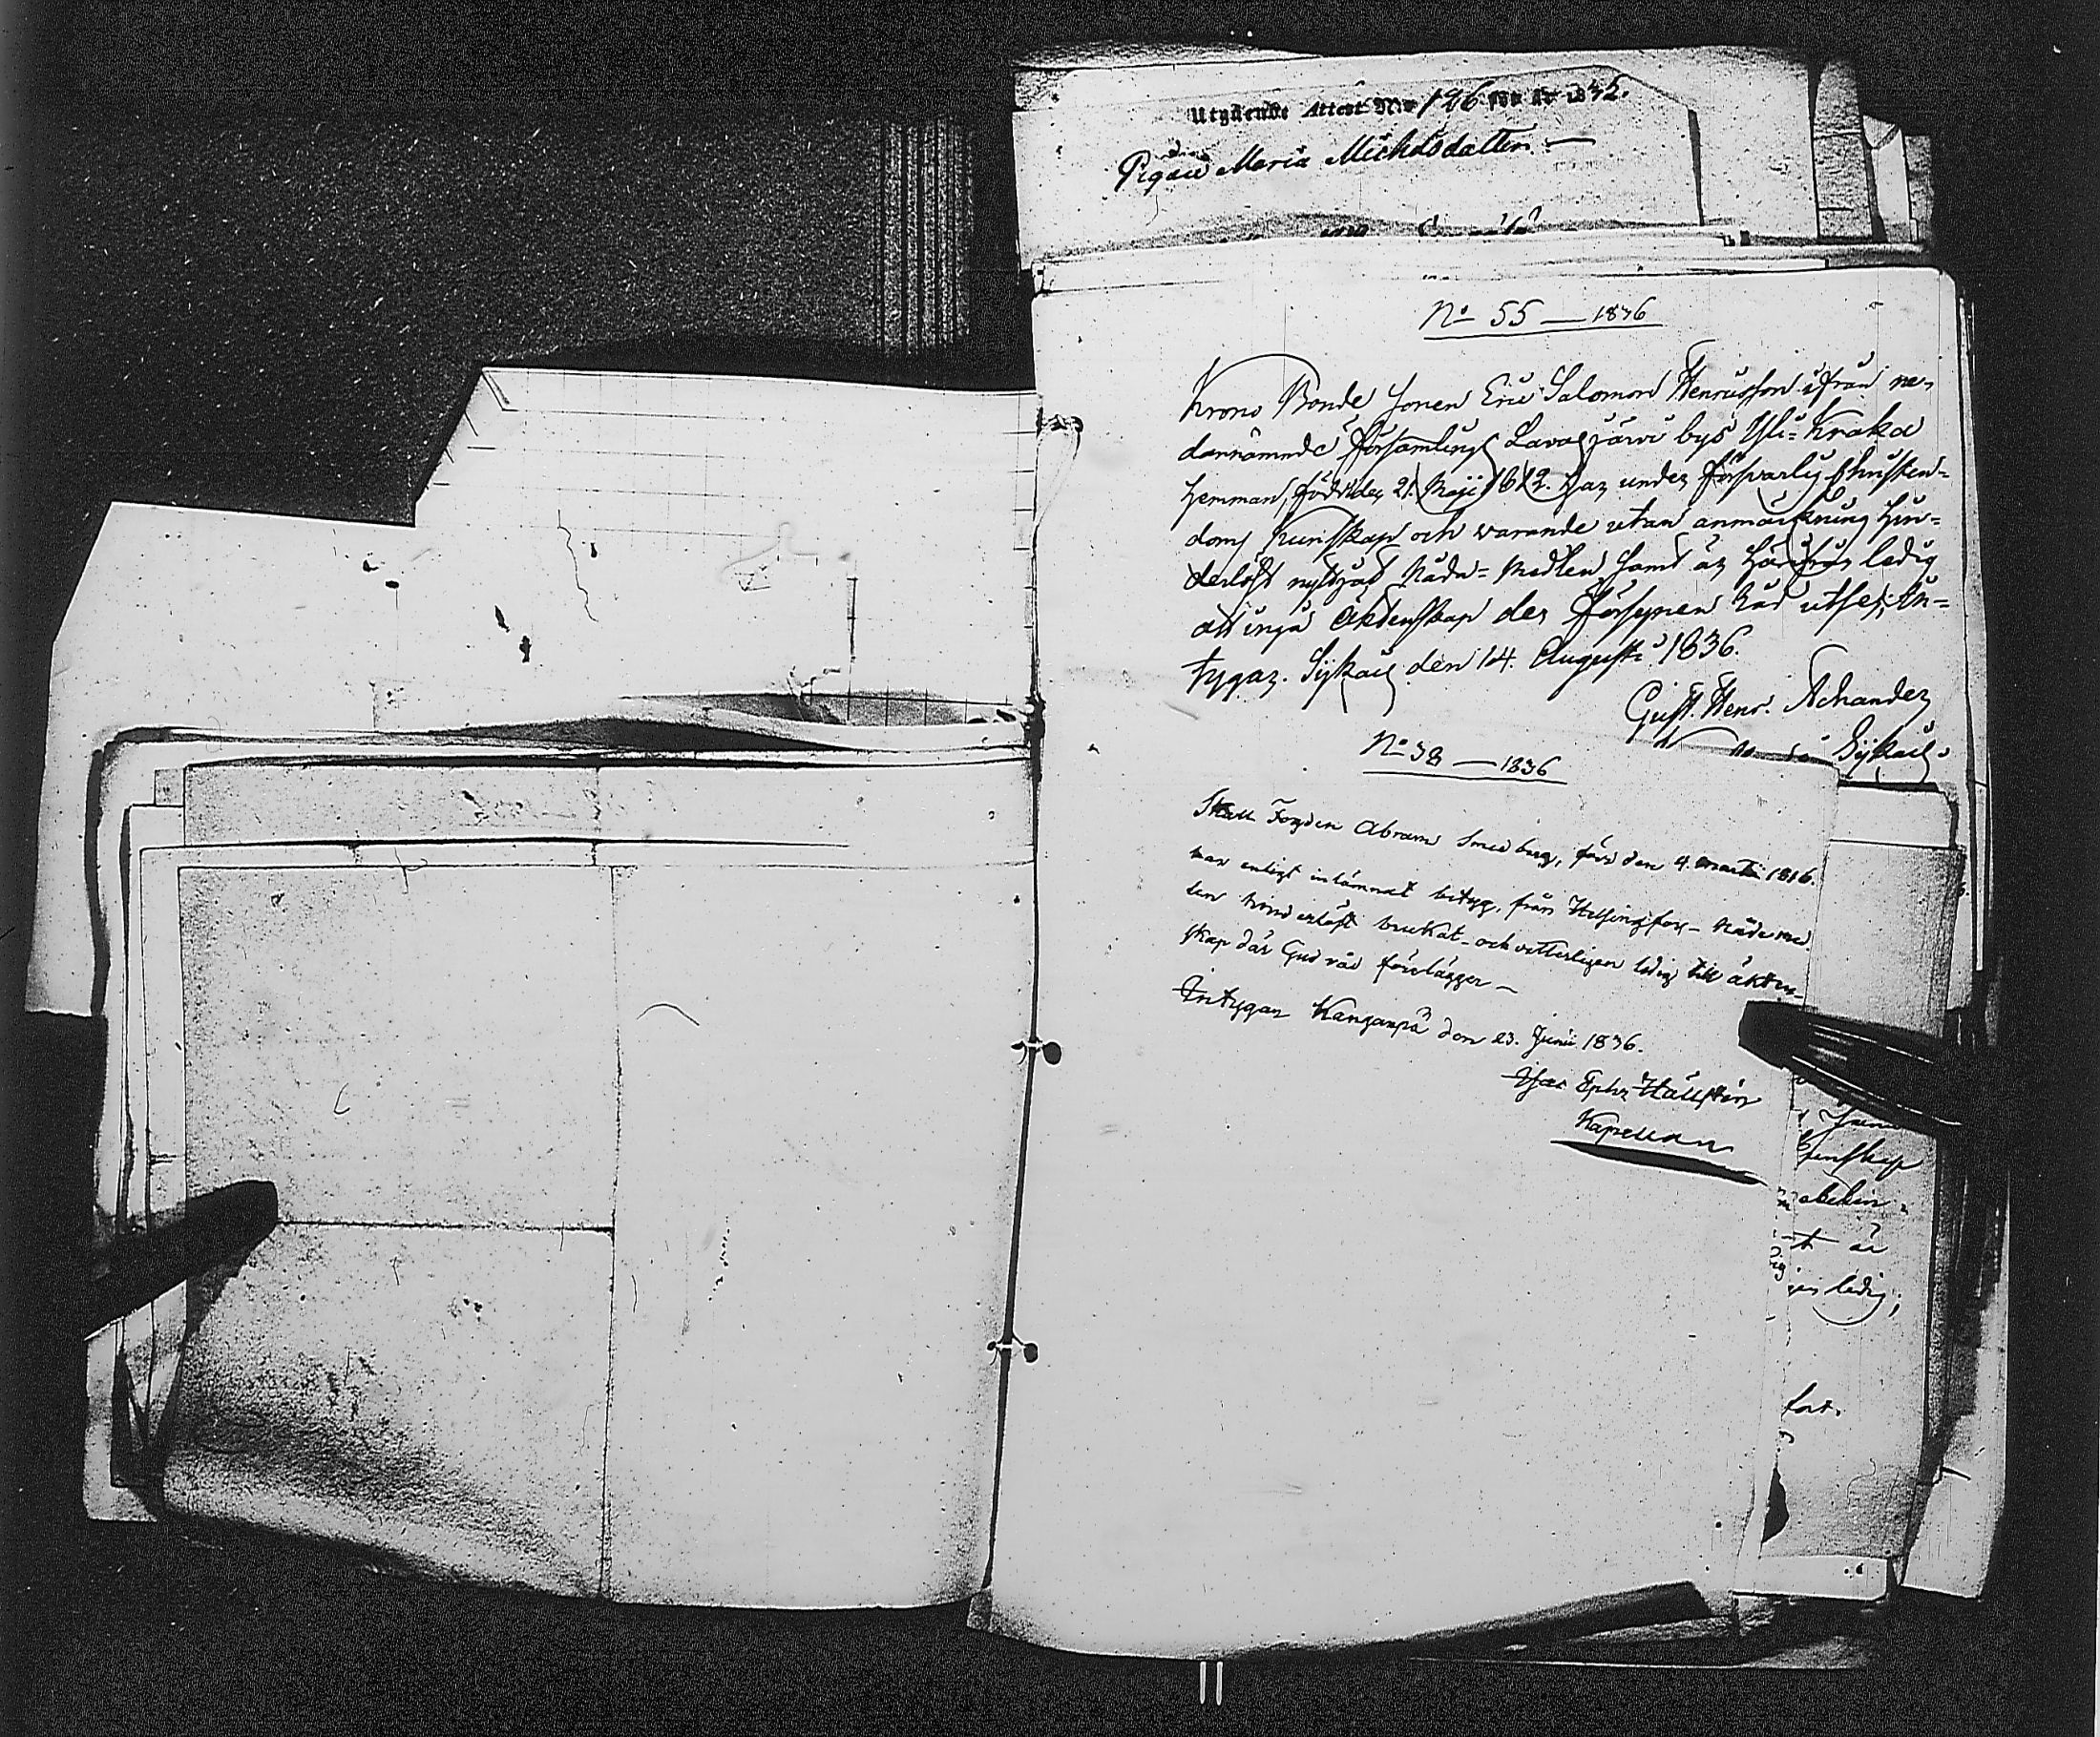 Utgående Attest No 196 för år 1842.
Pigan Maria Michelsdotter. —
No 55 — 1836
Krono Bonde Sonen Eric Salomon Henricsson ifrån ne-
dannämnde Församlings Lavasjärvi bys Yli-Kraka
Hemman, född den 21. Maji 1812. har under försvarlig Christen-
doms Kunskap och varande utan anmärkning hin-
derlöst nyttjat Nåda-Medlen samt är härifrån ledig
att ingå Äktenskap der Försynen råd utser; In-
tygar. Sykais den 14. Augusti 1836.
Gust. Henr. Achander
Sykais.
No 38 — 1836
Skall Fogden Abram Smedberg, född den 4. Martii 1816.
har enligt inlämnat betyg, från Helsingfors - Nådemed
len hinderlöst brukat - och vitterligen ledig till äkten-
skap där Gud råd förelägger —
Intygar Kanganpä den 23. Junii 1836.
Isac Ephr Hällsten
Kapellan
tenskap
t är
ledig;
fort.